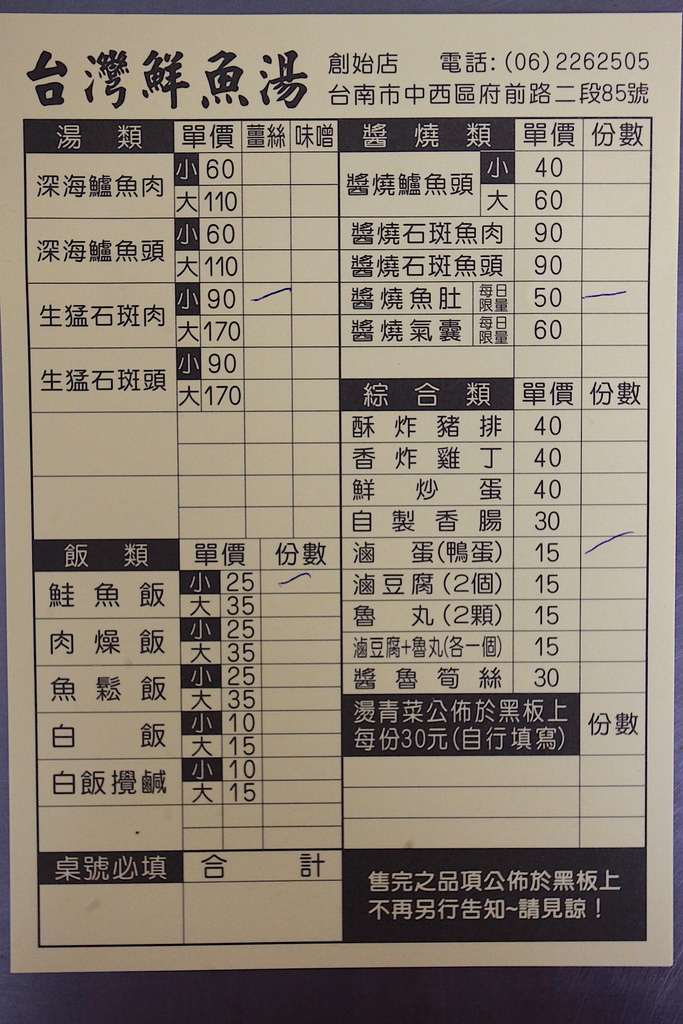 台灣鮮魚湯
創始店 電話:(06)2262505
台南市中西區府前路二段85號
湯類 單價 薑絲 味噌
深海鱸魚肉 小 60
大 110
深海鱸魚頭 小 60
大 110
生猛石斑肉 小 90
大 170
生猛石斑頭 小 90
大 170
飯類 單價 份數
鮭魚飯 小 25
大 35
肉燥飯 小 25
大 35
魚鬆飯 小 25
大 35
白飯 小 10
大 15
白飯攪鹹 小 10
大 15
桌號必填 合計
醬燒類 單價 份數
醬燒鱸魚頭 小 40
大 60
醬燒石斑魚肉 90
醬燒石斑魚頭 90
醬燒魚肚 每日限量 50
醬燒氣囊 每日限量 60
綜合類 單價 份數
酥炸豬排 40
香炸雞丁 40
鮮炒蛋 40
自製香腸 30
滷蛋(鴨蛋) 15
滷豆腐(2個) 15
魯丸(2顆) 15
滷豆腐+魯丸(各一個) 15
醬魯筍絲 30
燙青菜公佈於黑板上
每份30元(自行填寫) 份數
售完之品項公佈於黑板上
不再另行告知~請見諒！